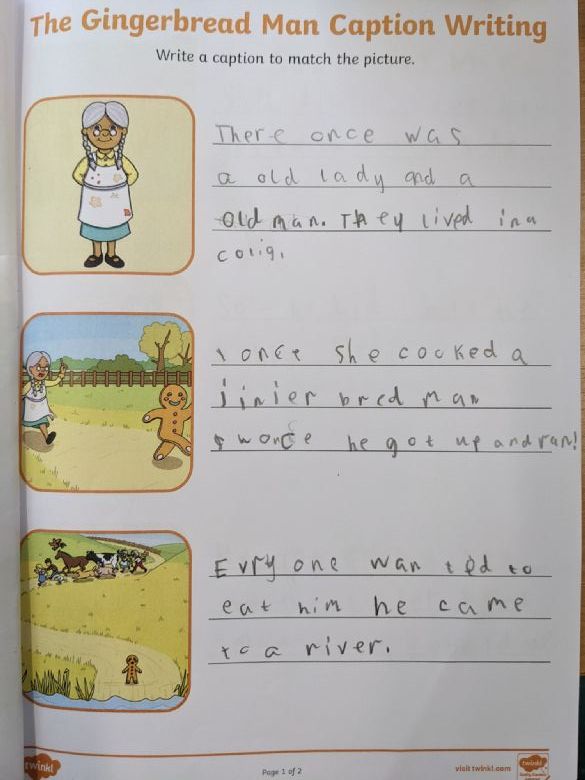 The Gingerbread Man Caption Writing
Write a caption to match the picture.
There once was
a old lady and a
old man. They lived in a
cotig.
once she cooked a
jinier bred man
wonce he got up and ran!
Evry one wanted to
eat him he came
to a river.
twinkl
Page 1 of 2
visit twinkl.com
twinkl